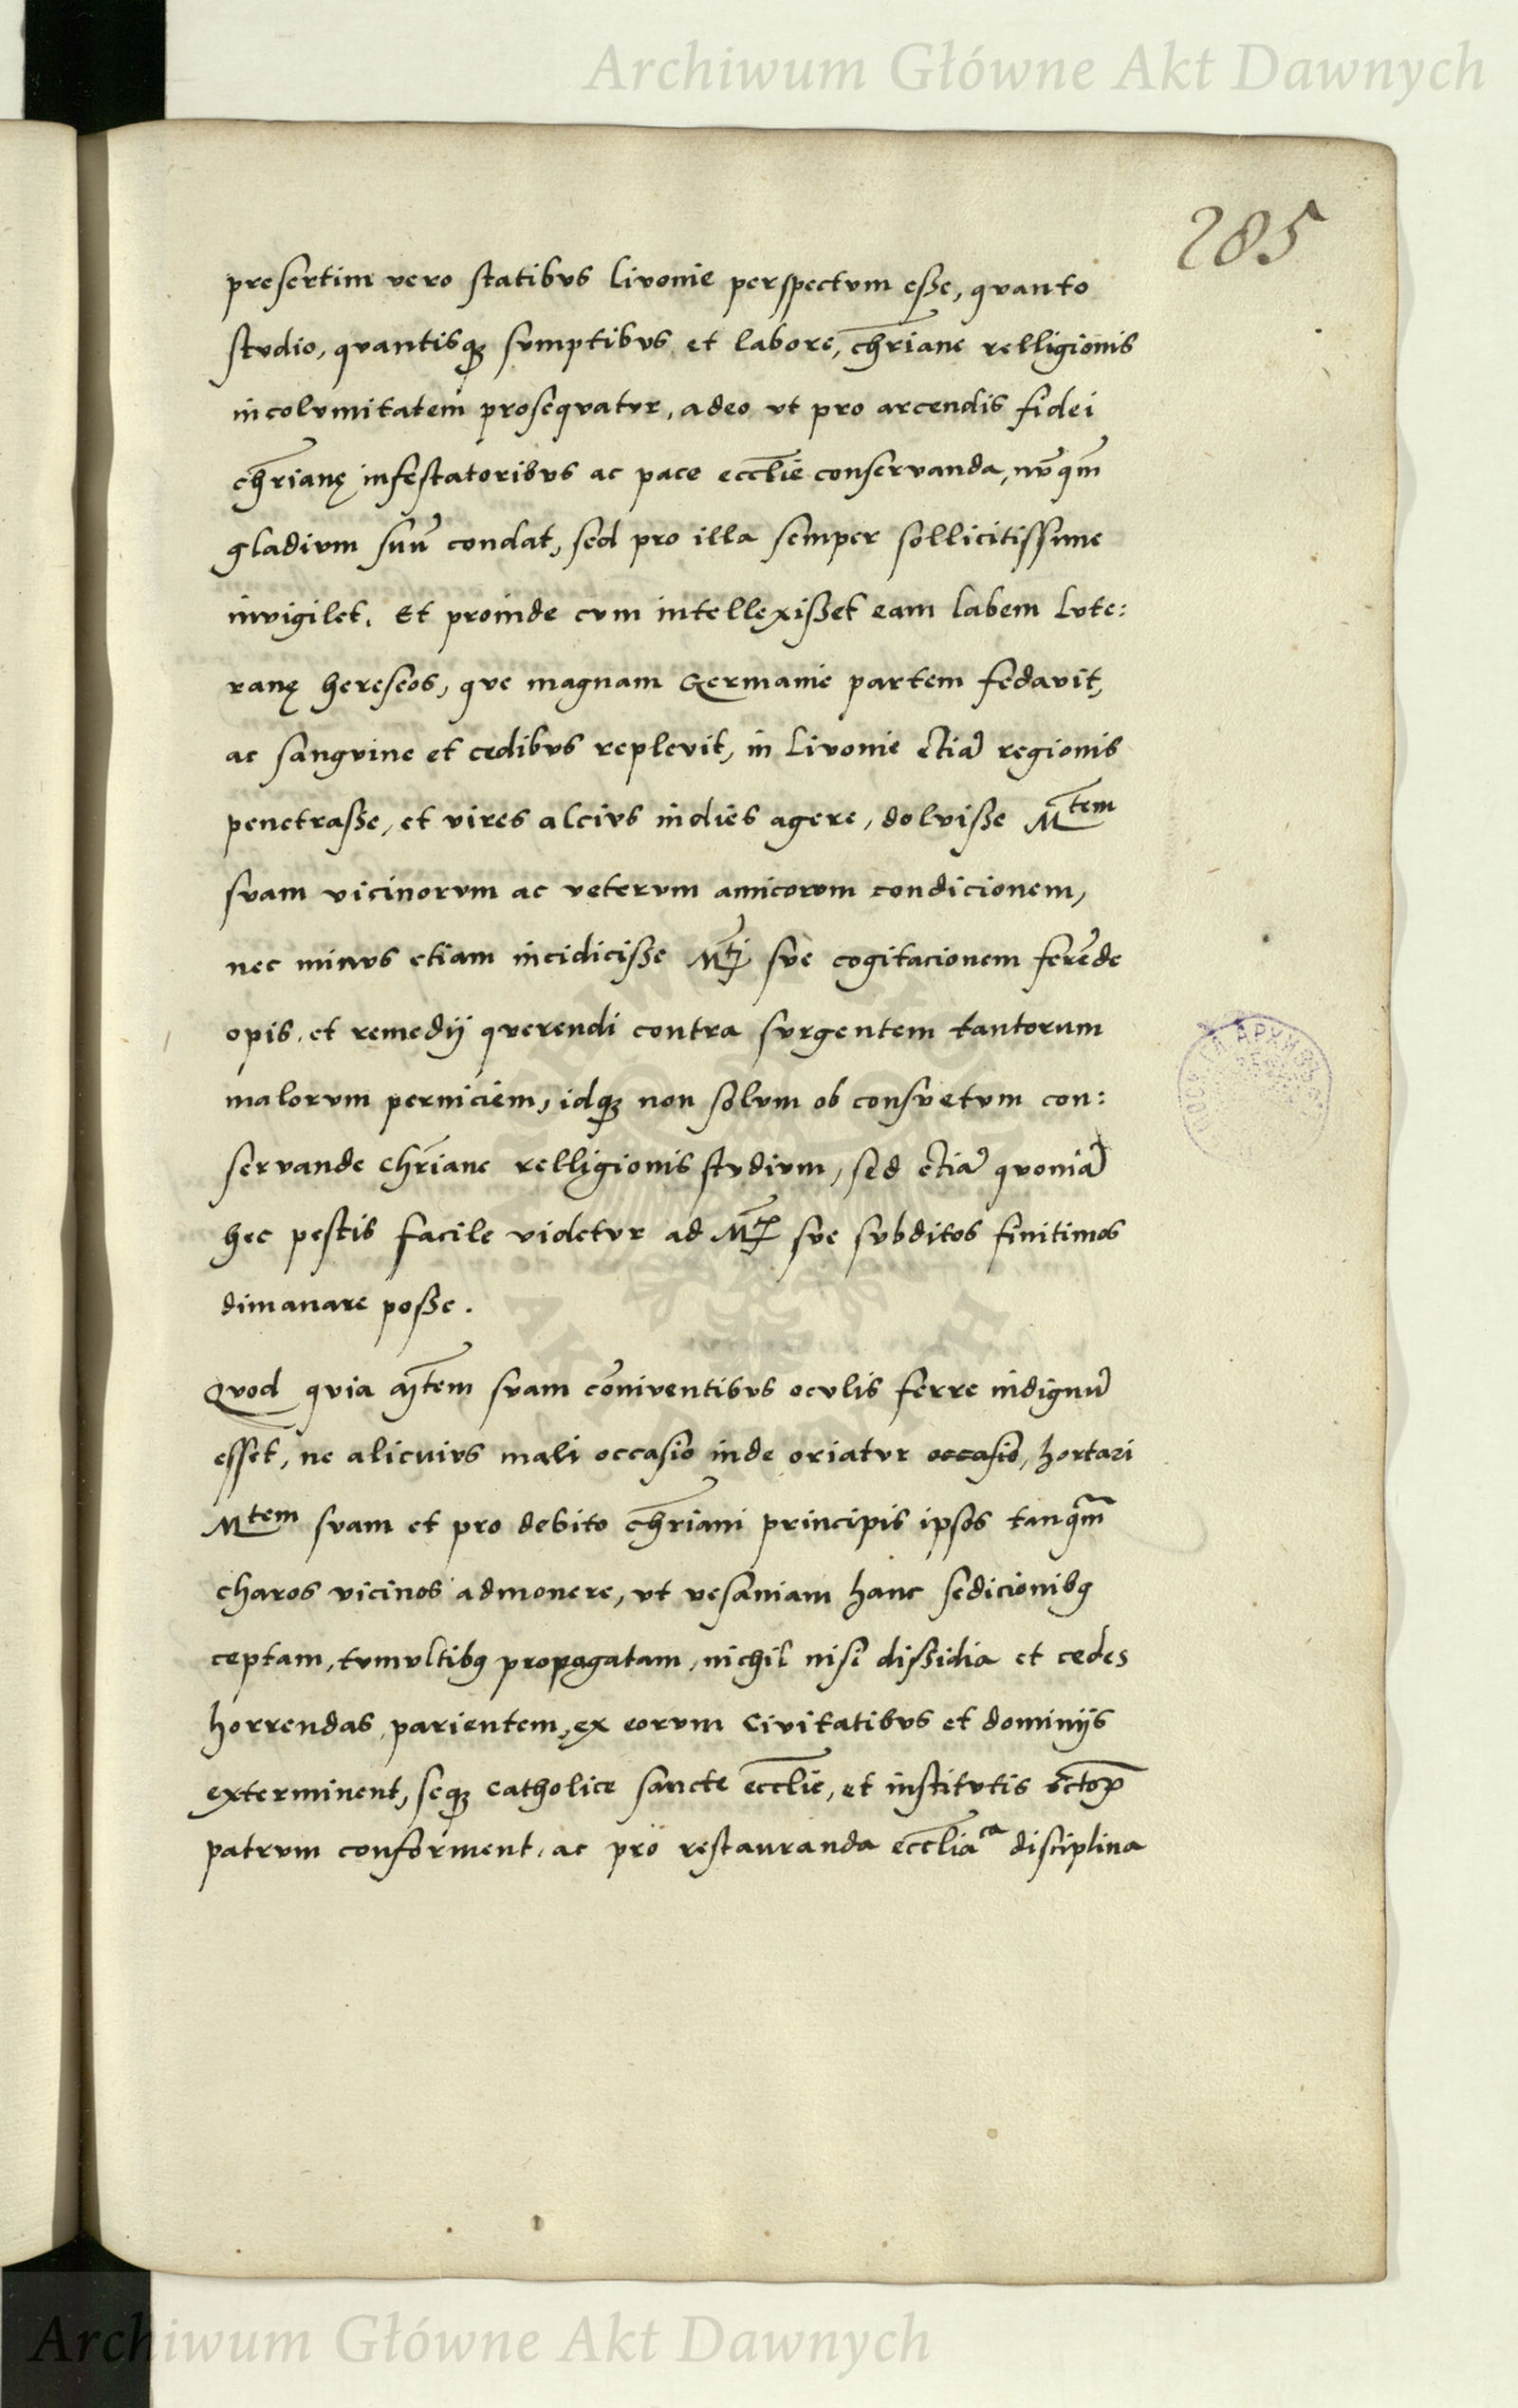 Archiwum Główne Akt Dawnych
285
presertim vero statibvs livonie perspectvm eſße, qvanto
stvdio, qvantisqꝫ svmptibvs et labore, chr̄iane relligionis
incolvmitatem proseqvatvr, adeo vt pro arcendis fidei
chr̄ianę infestatoribvs ac pace eccl̄ie conservanda, nv̄qm̄
gladivm suū condat, sed pro illa semper sollicitissime
invigilet. Et proinde cvm intellexißet eam labem lvte:
ranę hereseos, qve magnam Germanie partem fedavit,
ac sangvine et cedibvs replevit, in livonie etiā regionis
penetraße, et vires alcivs indies agere, dolviße Mtem
svam vicinorvm ac vetervm amicorvm condicionem,
nec minvs etiam incidiciße Mti sve cogitacionem ferēde
opis, et remedij qverendi contra svrgentem tantorum
malorvm perniciem, idqꝫ non solvm ob consvetvm con:
servande chr̄iane relligionis stvdivm, sed etiā qvoniā
hec pestis facile videtvr ad Mtis sve svbditos finitimos
dimanare poße.
Qvod qvia Mtem svam cōniventibvs ocvlis ferre indignū
esset, ne alicuivs mali occasio inde oriatvr occasio, hortari
Mtem svam et pro debito chr̄iani principis ipsos tanqm̄
charos vicinos admonere, vt vesaniam hanc sedicionibꝯ
ceptam, tvmvltibꝯ propagatam, nichil nisi dißidia et cedes
horrendas parientem, ex eorvm civitatibvs et dominijs
exterminent, seqꝫ catholice sancte eccl̄ie, et institvtis sctoꝝ
patrvm conforment, ac pro restauranda eccl̄iaca disciplina
ARCHIWUM GŁÓWNE
AKT DAWNYCH
Archiwum Główne Akt Dawnych